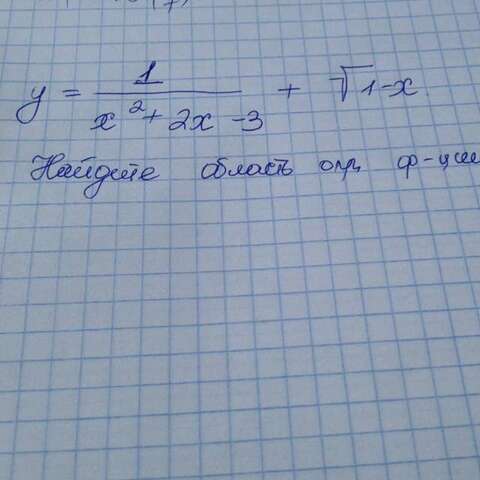 y = 1/(x² + 2x - 3) + √1-x
Найдите область опр ф-ции